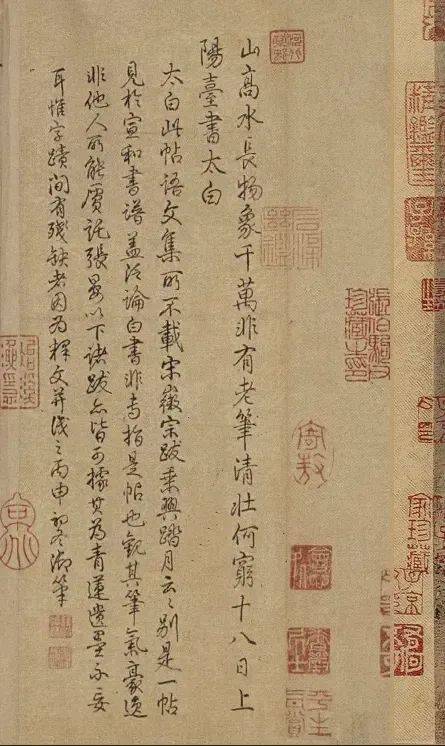 山高水長物象千萬非有老筆清壯何窮十八日上
陽臺書太白
太白此帖語文集所不載宋徽宗跋乘興踏月云々別是一帖
見於宣和書譜蓋泛論白書非專指是帖也觀其筆氣豪逸
非他人所能贋託張晏以下諸跋亦皆可據其為青蓮遺墨不妄
耳惟字蹟間有殘缺者因為釋文并識之丙申初冬御筆
張伯駒父
珍藏之印